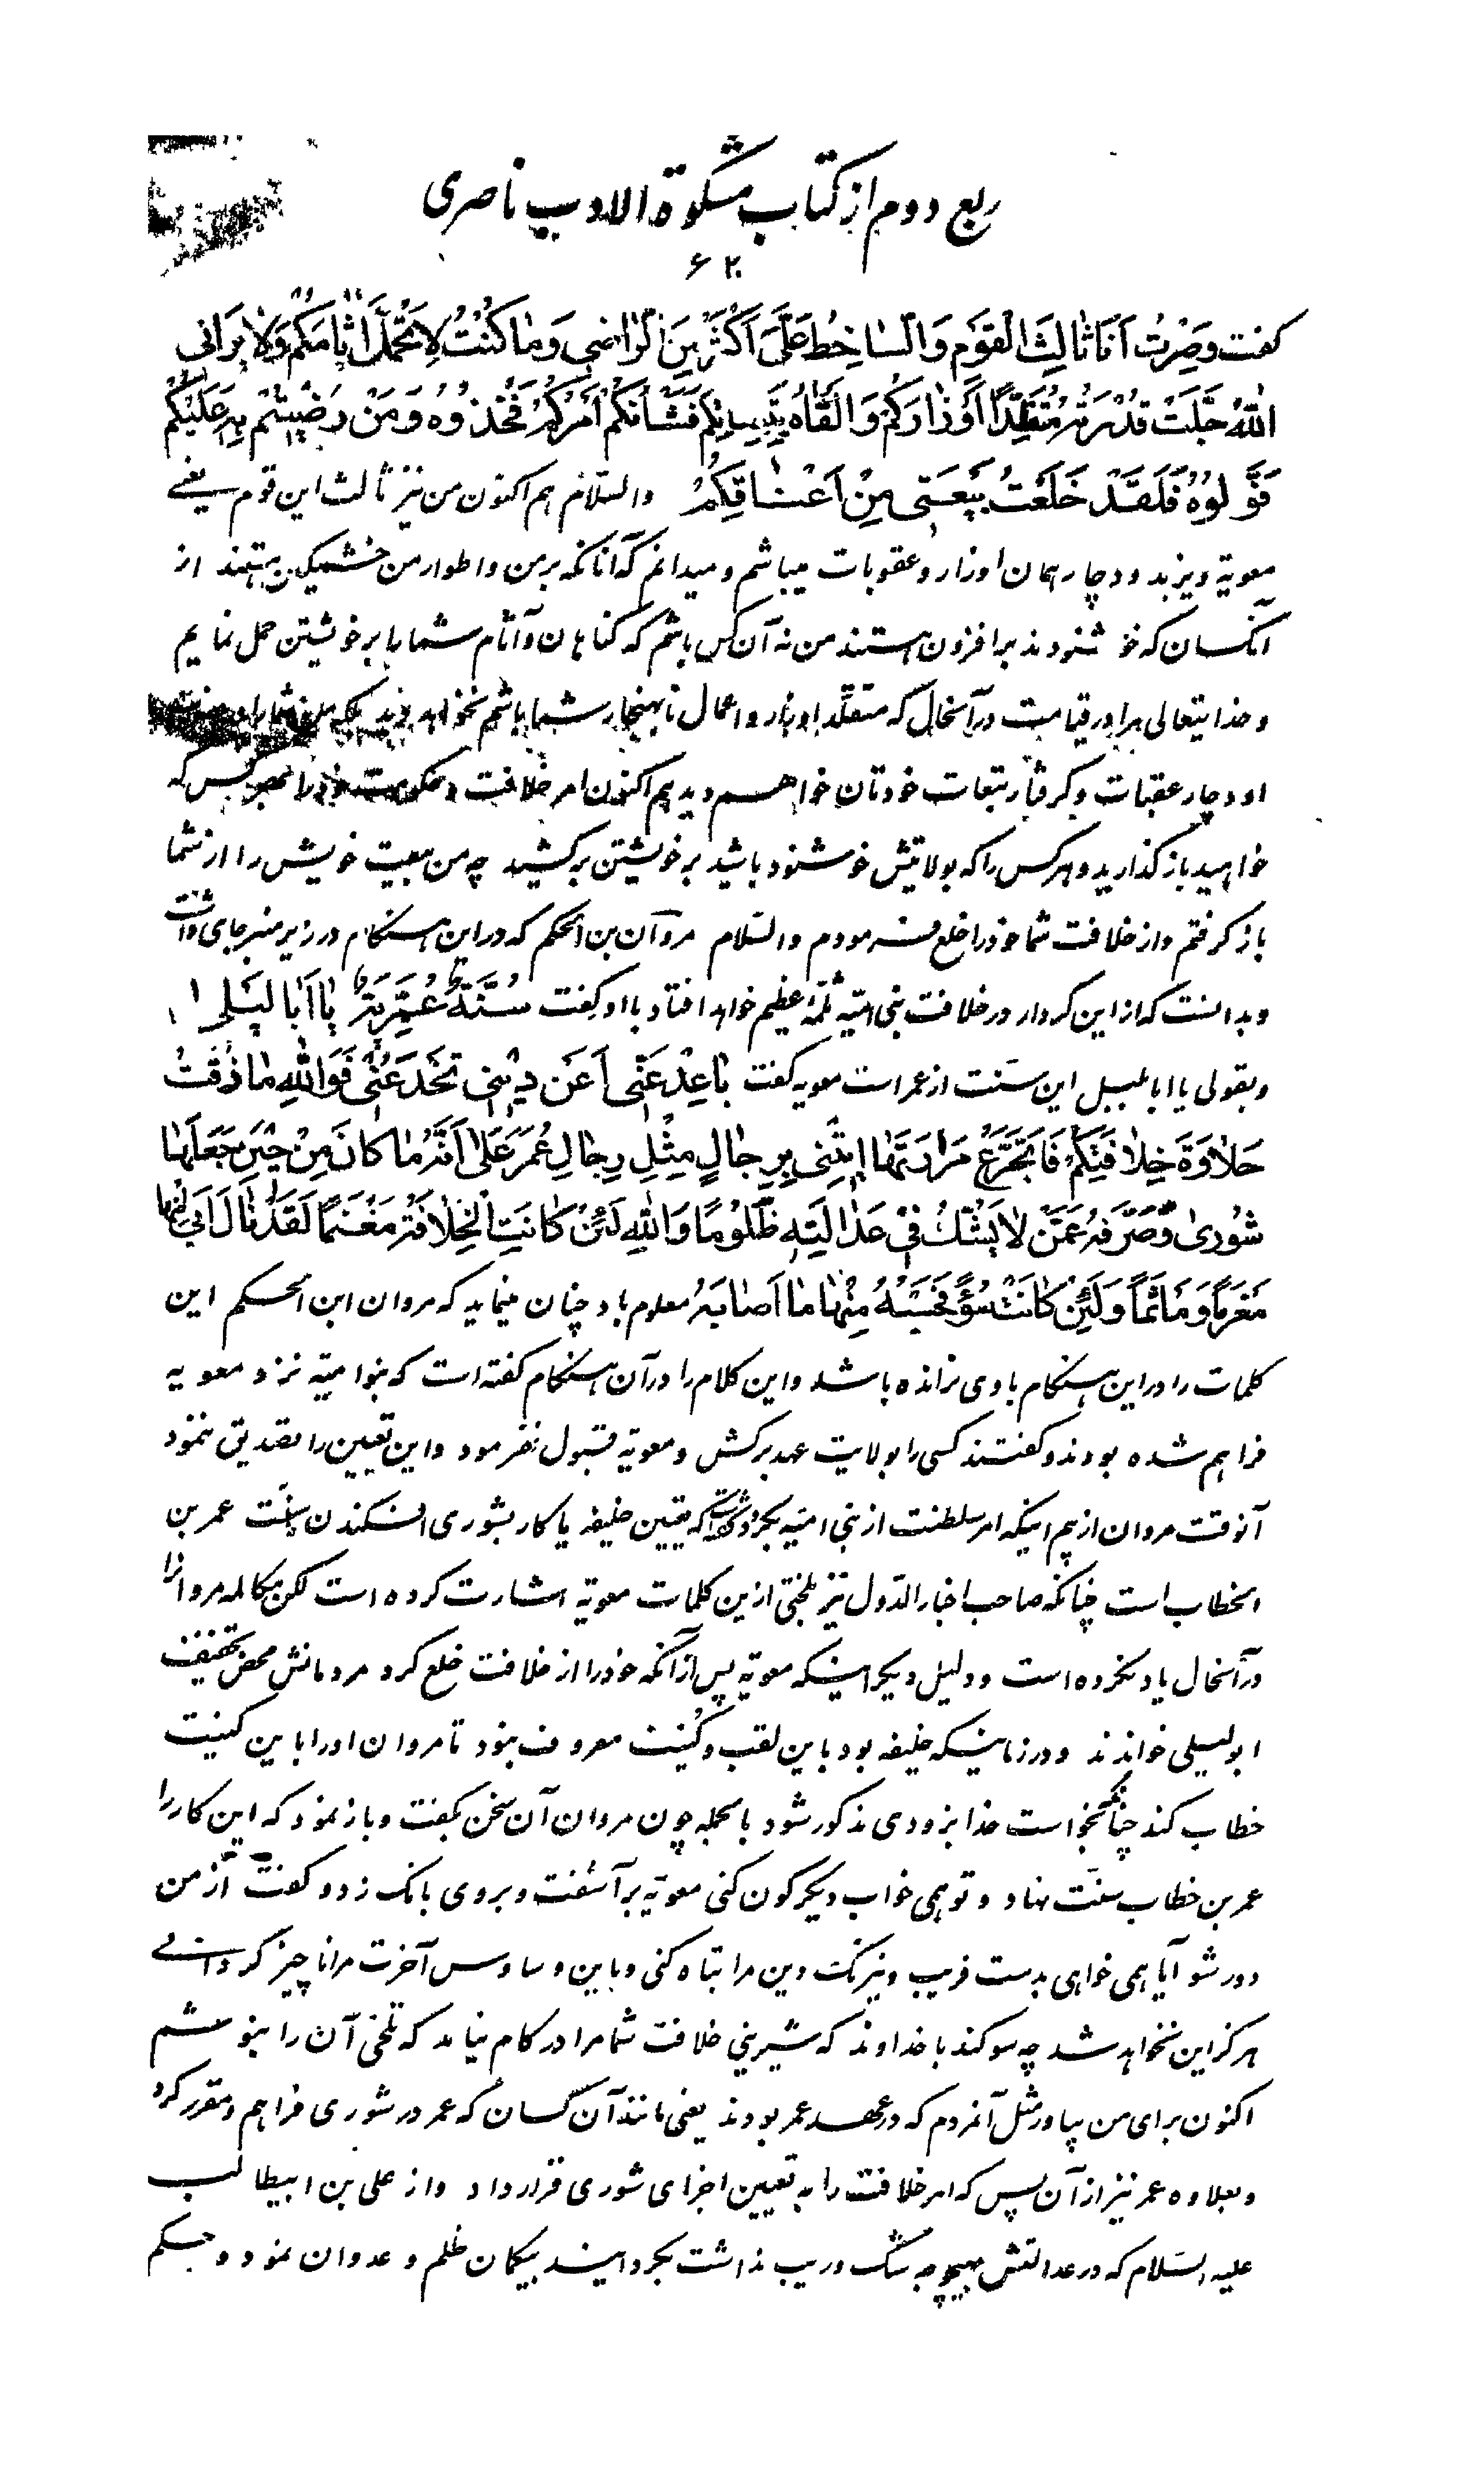 ربع دوم از کتاب مشکوة الادب ناصری
۶۲۰
کفت وَصِرْتُ اَنَا ثٰالِثَ الْقَوْمِ وَالسّٰاخِطُ عَلَیَّ اَکْثَرُ مِنَ الرّٰاضی وَمٰا کُنْتُ لِاَتَحَمَّلَ اٰثٰامَکُمْ وَلٰا یَرٰانِی
اللّٰهُ جَلَّتْ قُدْرَتُهُ مُتَقَلِّدًا اَوْزٰارَکُمْ وَاَلْقٰاهُ بِتَبِعٰاتِکُمْ فَشَأنُکُمْ اَمْرُکُمْ فَخُذُوهُ وَمَنْ رَضِیتُمْ بِهِ عَلَیْکُمْ
فَوَلُّوُهُ فَلَقَدْ خَلَعْتُ بَیْعَتی مِنْ اَعْنٰاقِکُمْ والسّلام هم اکنون من نیز ثالث این قوم یعنے
معویة ویزید ودچار همان اوزار وعقوبات میباشم ومیدانم که آنانکه بر من واطوار من خشمیکین هستند از
آنکسان که خوشنودند برافزون هستند من نه آن کس باشم که کناهان وآثام شما را بر خویشتن حمل نمایم
وخدایتعالی مرا در قیامت در آنحال که متقلّد اوزار واعمال نابهنجار شما باشم نخواهد دید
او دچار عقبات وکرفتار تبعات خودتان خواهم دید هم اکنون امر خلافت وحکومت خود را بهر کس که
خواهید باز کذارید وهر کس را که بولایتش خوشنود باشید بر خویشتن برکشید چه من بیعت خویش را از شما
باز کرفتم واز خلافت شما خود را خلع فرمودم والسّلام مروان بن الحکم که در این هنکام در زیر منبر جای داشت
وبدانست که از این کردار در خلافت بنی امیّه ثلمهٔ عظیم خواهد افتاد با او کفت سُنَّةٌ عُمَرِیَّةٌ یٰا اَبٰا لَیْلٰی
وبقولی یا ابا لیلی این سنّت از عمر است معویه کفت بٰاعِدْ عَنّی اَعَنْ دینی تَخْدَعُنی فَوَاللّٰهِ مٰا ذُقْتُ
حَلٰاوَةَ خِلٰافَتِکُمْ فَاَتَجَرَّعَ مَرٰارَتَهٰا ایتِنی بِرِجٰالٍ مِثْلِ رِجٰالِ عُمَرَ عَلٰی اَنَّهُ مٰا کٰانَ مِنْ حینَ جَعَلَهٰا
شُورٰی وَصَرَفَهُ عَمَّنْ لٰا یَشُکُّ فی عَدٰالَتِهِ ظَلُومًا وَاللّٰهِ لَئِنْ کٰانَتِ الْخِلٰافَةُ مَغْنَمًا لَقَدْ نٰالَ اَبی مِنْهٰا
مَغْرَمًا وَمَأثَمًا وَلَئِنْ کٰانَتْ سُوءً فَحَسْبُهُ مِنْهٰا مٰا اَصٰابَهُ معلوم باد چنان مینماید که مروان ابن الحکم این
کلمات را در این هنکام با وی نرانده باشد واین کلام را در آن هنکام کفته است که بنوامیّه نزد معویه
فراهم شده بودند وکفتند کسی را بولایت عهد برکش ومعویّه قبول نفرمود واین تعیین را تصدیق ننمود
آنوقت مروان از بیم اینکه امر سلطنت از بنی امیّه بکردد کفت که تعیین خلیفه یا کار بشوری افکندن سنّت عمر بن
الخطاب است چنانکه صاحب اخبار الدّول نیز بلختی از ین کلمات معویّه اشارت کرده است لکن مکالمه مروانرا
در آنحال یاد نکرده است ودلیل دیکر اینکه معویّه پس از آنکه خود را از خلافت خلع کرد مردمانش محض تخفیف
ابولیلی خواندند ودر زمانیکه خلیفه بود باین لقب وکنیت معروف نبود تا مروان او را باین کنیت
خطاب کند چنانکه بخواست خدا بزودی مذکور شود بالجمله چون مروان آن سخن بکفت وباز نمود که این کار را
عمر بن خطاب سنّت نهاد وتو همی خواب دیکرکون کنی معویّه برآشفت وبروی بانک زد وکفت از من
دور شو آیا همی خواهی بدست فریب ونیرنک دین مرا تباه کنی وباین وساوس آخرت مرا ناچیز کردانے
هرکز این نخواهد شد چه سوکند با خداوند که شیرینی خلافت شما مرا در کام نیامد که تلخی آن را بنوشم
اکنون برای من بیاور مثل آنمردم که در عهد عمر بودند یعنی مانند آن کسان که عمر در شوری فراهم ومقرر کرد
وبعلاوه عمر نیز از آن پس که امر خلافت را به تعیین اجزای شوری قرار داد واز علی بن ابیطالب
علیه السّلام که در عدالتش بهیچوجه شک وریب نداشت بکردانید بیکمان ظلم وعدوان نمود وبحکم